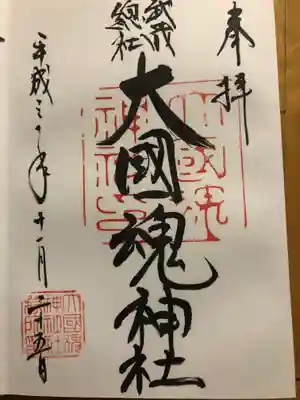 奉拝
武蔵
総社
大國魂神社
平成三十年十一月二十五日